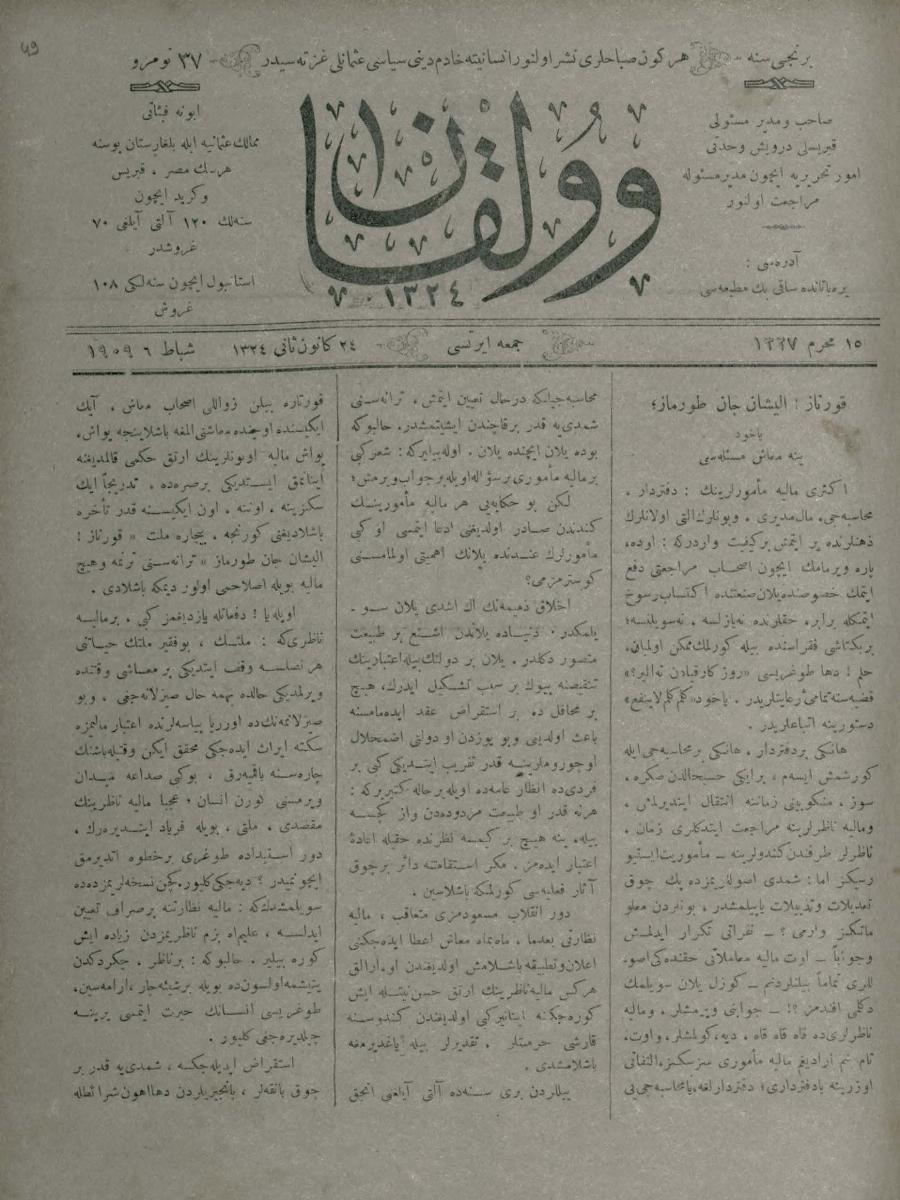 49
برنجی سنه
هر كون صباحلری نشر اولنور انسانیته خادم دینی سیاسی عثمانلی غزته سیدر
٣٧ نومرو
صاحب و مدیر مسئولی
قبریسلی درویش وحدتی
امور تحریریه ایچون مدیر مسئوله
مراجعت اولنور
آدره‌سی :
یره‌باتانده ساقی بك مطبعه‌سی
وولقان
١٣٢٤
ابونه فیئاتی
ممالك عثمانیه ایله بلغارستان بوسنه
هرسك مصر ، قبریس
و كرید ایچون
سنه‌لك ١٢٠ آلتی آیلغی ٧٠
غروشدر
استانبول ایچون سنه‌لكی ١٠٨
غروش
١٥ محرم ١٣٢٧
جمعه ایرتسی
٢٤ كانون ثانی ١٣٢٤
شباط ٦ ١٩٠٩
قورتاز : الیشان جان طورماز ؛
یاخود
ینه معاش مسئله‌سی
اكثری مالیه مأمورلرینك : دفتردار .
محاسبه‌جی . مال مدیری . وبونلرك التی اولانلرك
ذهنلرنده یر ایتمش بركیفیت واردركه : اوده،
پاره ویرمامك ایچون اصحاب مراجعتی دفع
ایتمك خصوصنده یلان صنعتنده اكتساب رسوخ
ایتمكله برابر، حقلرنده نه‌یازلسه ، نه‌سویلنسه؛
بربكتاشی فقراسنده بیله كورلمك ممكن اولمیان،
حلم ! دها طوغریسی «روز كار قیادن نه‌آلیر؟»
قضیه‌سنه تمامی رعایتلریدر . یاخود
دستورینه اتباعلریدر .
هانكی بر دفتردار . هانكی بر محاسبه‌جی ایله
كورشمش ایسه‌م ، برایكی حسبحالدن صكره .
سوز ، منكوبینی زماننه انتقال ایتدیرلمش ،
ومالیه ناظرلرینه مراجعت ایتدكلری زمان ،
ناظرلر طرفندن كندولرینه ــ مأموریت ایستیو
رسكز اما : شمدی اصوللریمزده پك چوق
تعدیلات وتذییلات یاپیلمشدر . بونلردن معلو
ماتكز وارمی ؟ ــ نقراتی تكرار ایدلمش
وجواباً ــ اوت مالیه معاملاتی حقنده‌كی اصو
للری تماماً بیلنلردنم ــ كوزل یلان سویلمك
دكلمی افندمز ؟! ــ جوابنی ویرمشلر . ومالیه
ناظرلری ده قاه قاه قاه ، دیه ، كولمشلر . واوت،
تام بنم ارادیغم مالیه مأموری سزسكز، التفاتی
اوزرینه یا دفترداری؛ دفتردارلغه، یا محاسبه‌جی یی
محاسبه‌جیلكه درحال تعیین ایتمش ، ترانه‌سنی
شمدی‌یه قدر برقاچندن ایشیتمشدر. حالبوكه
بوده یلان ایچنده یلان . اوله‌بیلیركه : شعركبی
بر مالیه مأموری برسؤاله اویله بر جواب ویرمش؛
لكن بو حكایه‌یی هر مالیه مأمورینك
كندندن صادر اولدیغنی ادعا ایتمسی او كبی
مأمورلرك عندنده یلانك اهمیتی اولمامسنی
كوسترمزمی؟
اخلاق ذمیمه‌نك اك اشدی یلان سو ـ
یلمكدر . دنیاده یلاندن اشنع بر طبیعت
متصور دكلدر . یلان بر دولتك بیله اعتبارینك
تنقیصنه بیوك بر سبب تشكیل ایدرك، هیچ
بر محافل ده بر استقراض عقد ایده‌مامسنه
باعث اولدیغنی وبو یوزدن او دولتی اضمحلال
اوچورومارینه قدر تقریب ایتدیكی كبی بر
فردی ده انظار عامه‌ده اویله بر حاله كتیریركه :
هرنه قدر او طبیعت مردوده‌دن واز كچسه
بیله، ینه هیچ بر كیمسه نظرنده حقیله اعاده
اعتبار ایده‌مز . مكر استقامتنه دائر بر چوق
آثار فعلیه‌سی كورلمكه باشلاسین .
دور انقلاب مسعودمزی متعاقب ، مالیه
نظارتی بعدما ، ماه‌بماه معاش اعطا ایده‌جكنی
اعلان وتطبیقه باشلامش اولدیغندن او، ارالق
هركس مالیه ناظرینك ارتق حسن نیتله ایش
كوره‌جكنه اینانیر كبی اولدیغندن كندوسنه
قارشی حرمتلر . تقدیرلر بیله یاغدیرمغه
باشلامشدی .
ییللردن بری سنه‌ده آلتی آیلغی آنجق
قورتاره بیلن زواللی اصحاب معاش ، آیك
ایكیسنده اوچنده معاشنی المغه باشلاینجه یواش،
یواش مالیه اویونلرینك ارتق حكمی قالمدیغنه
اینانمق ایستدیكی برصره‌ده ، تدریجاً آیك
سكزینه . اوننه . اون ایكیسنه قدر تأخره
باشلادیغنی كورنجه . بیچاره ملت « قورتاز !
الیشان جان طورماز » ترانه‌سنی ترنمه وهیچ
مالیه بویله اصلاحمی اولور دیمكه باشلادی .
اویله یا ! دفعاتله یازدیغمز كبی ، بر مالیه
ناظری‌كه : ملتسك ، بوفقیر ملتك حیاتنی
هر نصلسه وقف ایتدیكی بر معاشی وقتنده
ویرلمدیكی حالده نهمه حال صیزلانه‌جغی . وبو
صیزلانمه‌نك ده اوروپا پیاسه‌لرنده اعتبار مالیمزه
سكته ایراث ایده‌جكی محقق ایكن وقتیله باشنك
چاره‌سنه باقمیه‌رق ، بوكی صداعه میدان
ویرمسنی كورن انسان ؛ عجبا مالیه ناظرینك
مقصدی . ملتی ، بویله فریاد ایتدیره‌رك .
دور استبداده طوغری بر خطوه اتدیرمق
ایچونمیدر ؟ دیه‌جكی كلیور. كچن نسخه‌لریمزده‌ده
سویلمشدك كه : مالیه نظارتنه بر صراف تعیین
ایدلسه ، علیم‌الله بزم ناظریمزدن زیاده ایش
كوره بیلیر . حالبوكه : بر ناظر . چكردكدن
یتیشمه اولسون ده بویله بر شیئه چار ، ارامه‌سین،
طوغریسی انسانك حیرت ایتمسی یرینه
چیلدیره‌جغی كلیور .
استقراض ایدیله‌جكسه ، شمدی‌یه قدر بر
چوق بانقه‌لر ، بانجیریلردن دها اهون شرائطله